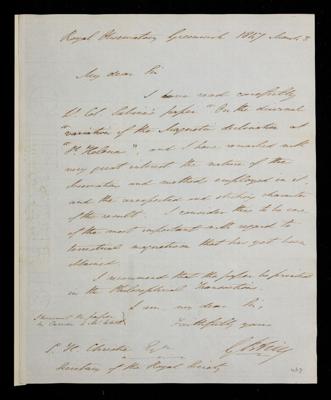 Royal Observatory Greenwich 1847 March 3
My dear Sir
I have read carefully
Lt. Col. Sabine's paper "On the diurnal
"variation of the Magnetic declination at
"St. Helena", and I have remarked with
very great interest the nature of the
observations and method employed in it,
and the unexpected and striking character
of the result. I consider this to be one
of the most important with regard to
terrestrial magnetism that has yet been
obtained.
I recommend that the paper be printed
in the Philosophical Transactions.
I am, my dear Sir,
Faithfully yours
G B Airy
I the paper
S. H. Christie Esqre
Secretary of the Royal Society